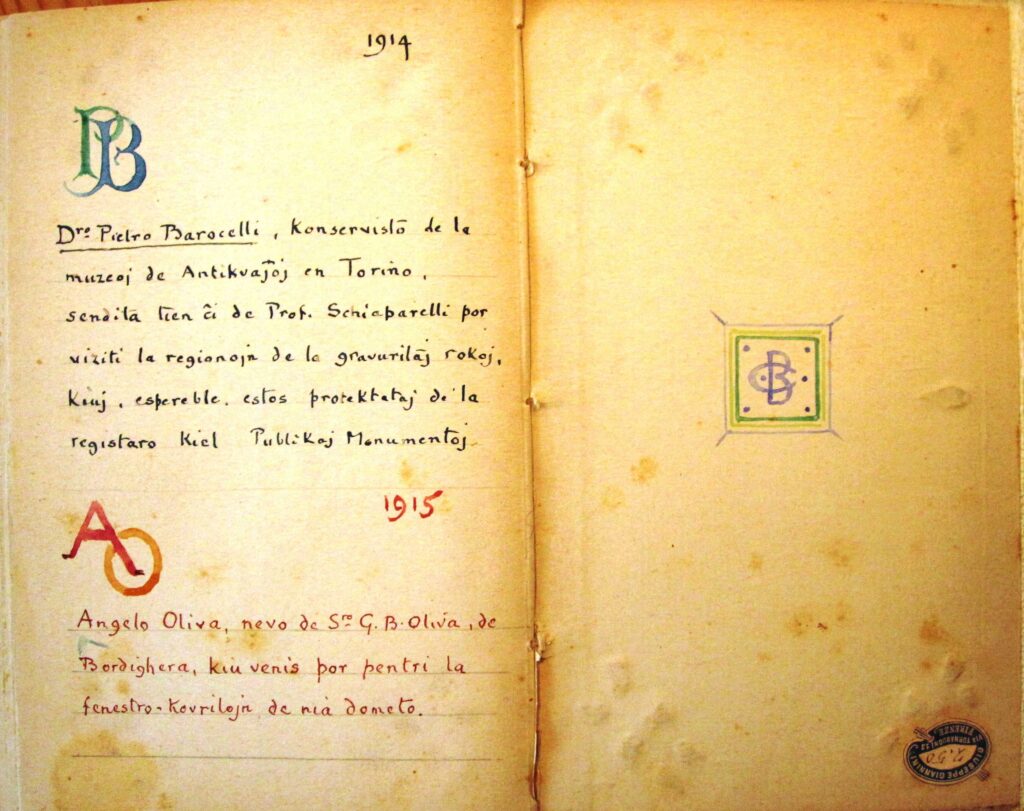 1914
PB
Dro Pietro Barocelli, Konservisto de la
muzeoj de Antikvaĵoj en Torino,
sendita tien ĉi de Prof. Schiaparelli por
viziti la regionojn de la gravuritaj rokoj,
kiuj, espereble, estos protektataj de la
registaro kiel Publikaj Monumentoj
1915
AO
Angelo Oliva, nevo de Sro G. B. Oliva, de
Bordighera, kiu venis por pentri la
fenestro-kovrilojn de nia dometo.
CB
GIUSEPPE GIANNINI
VIA TORNABUONI
FIRENZE